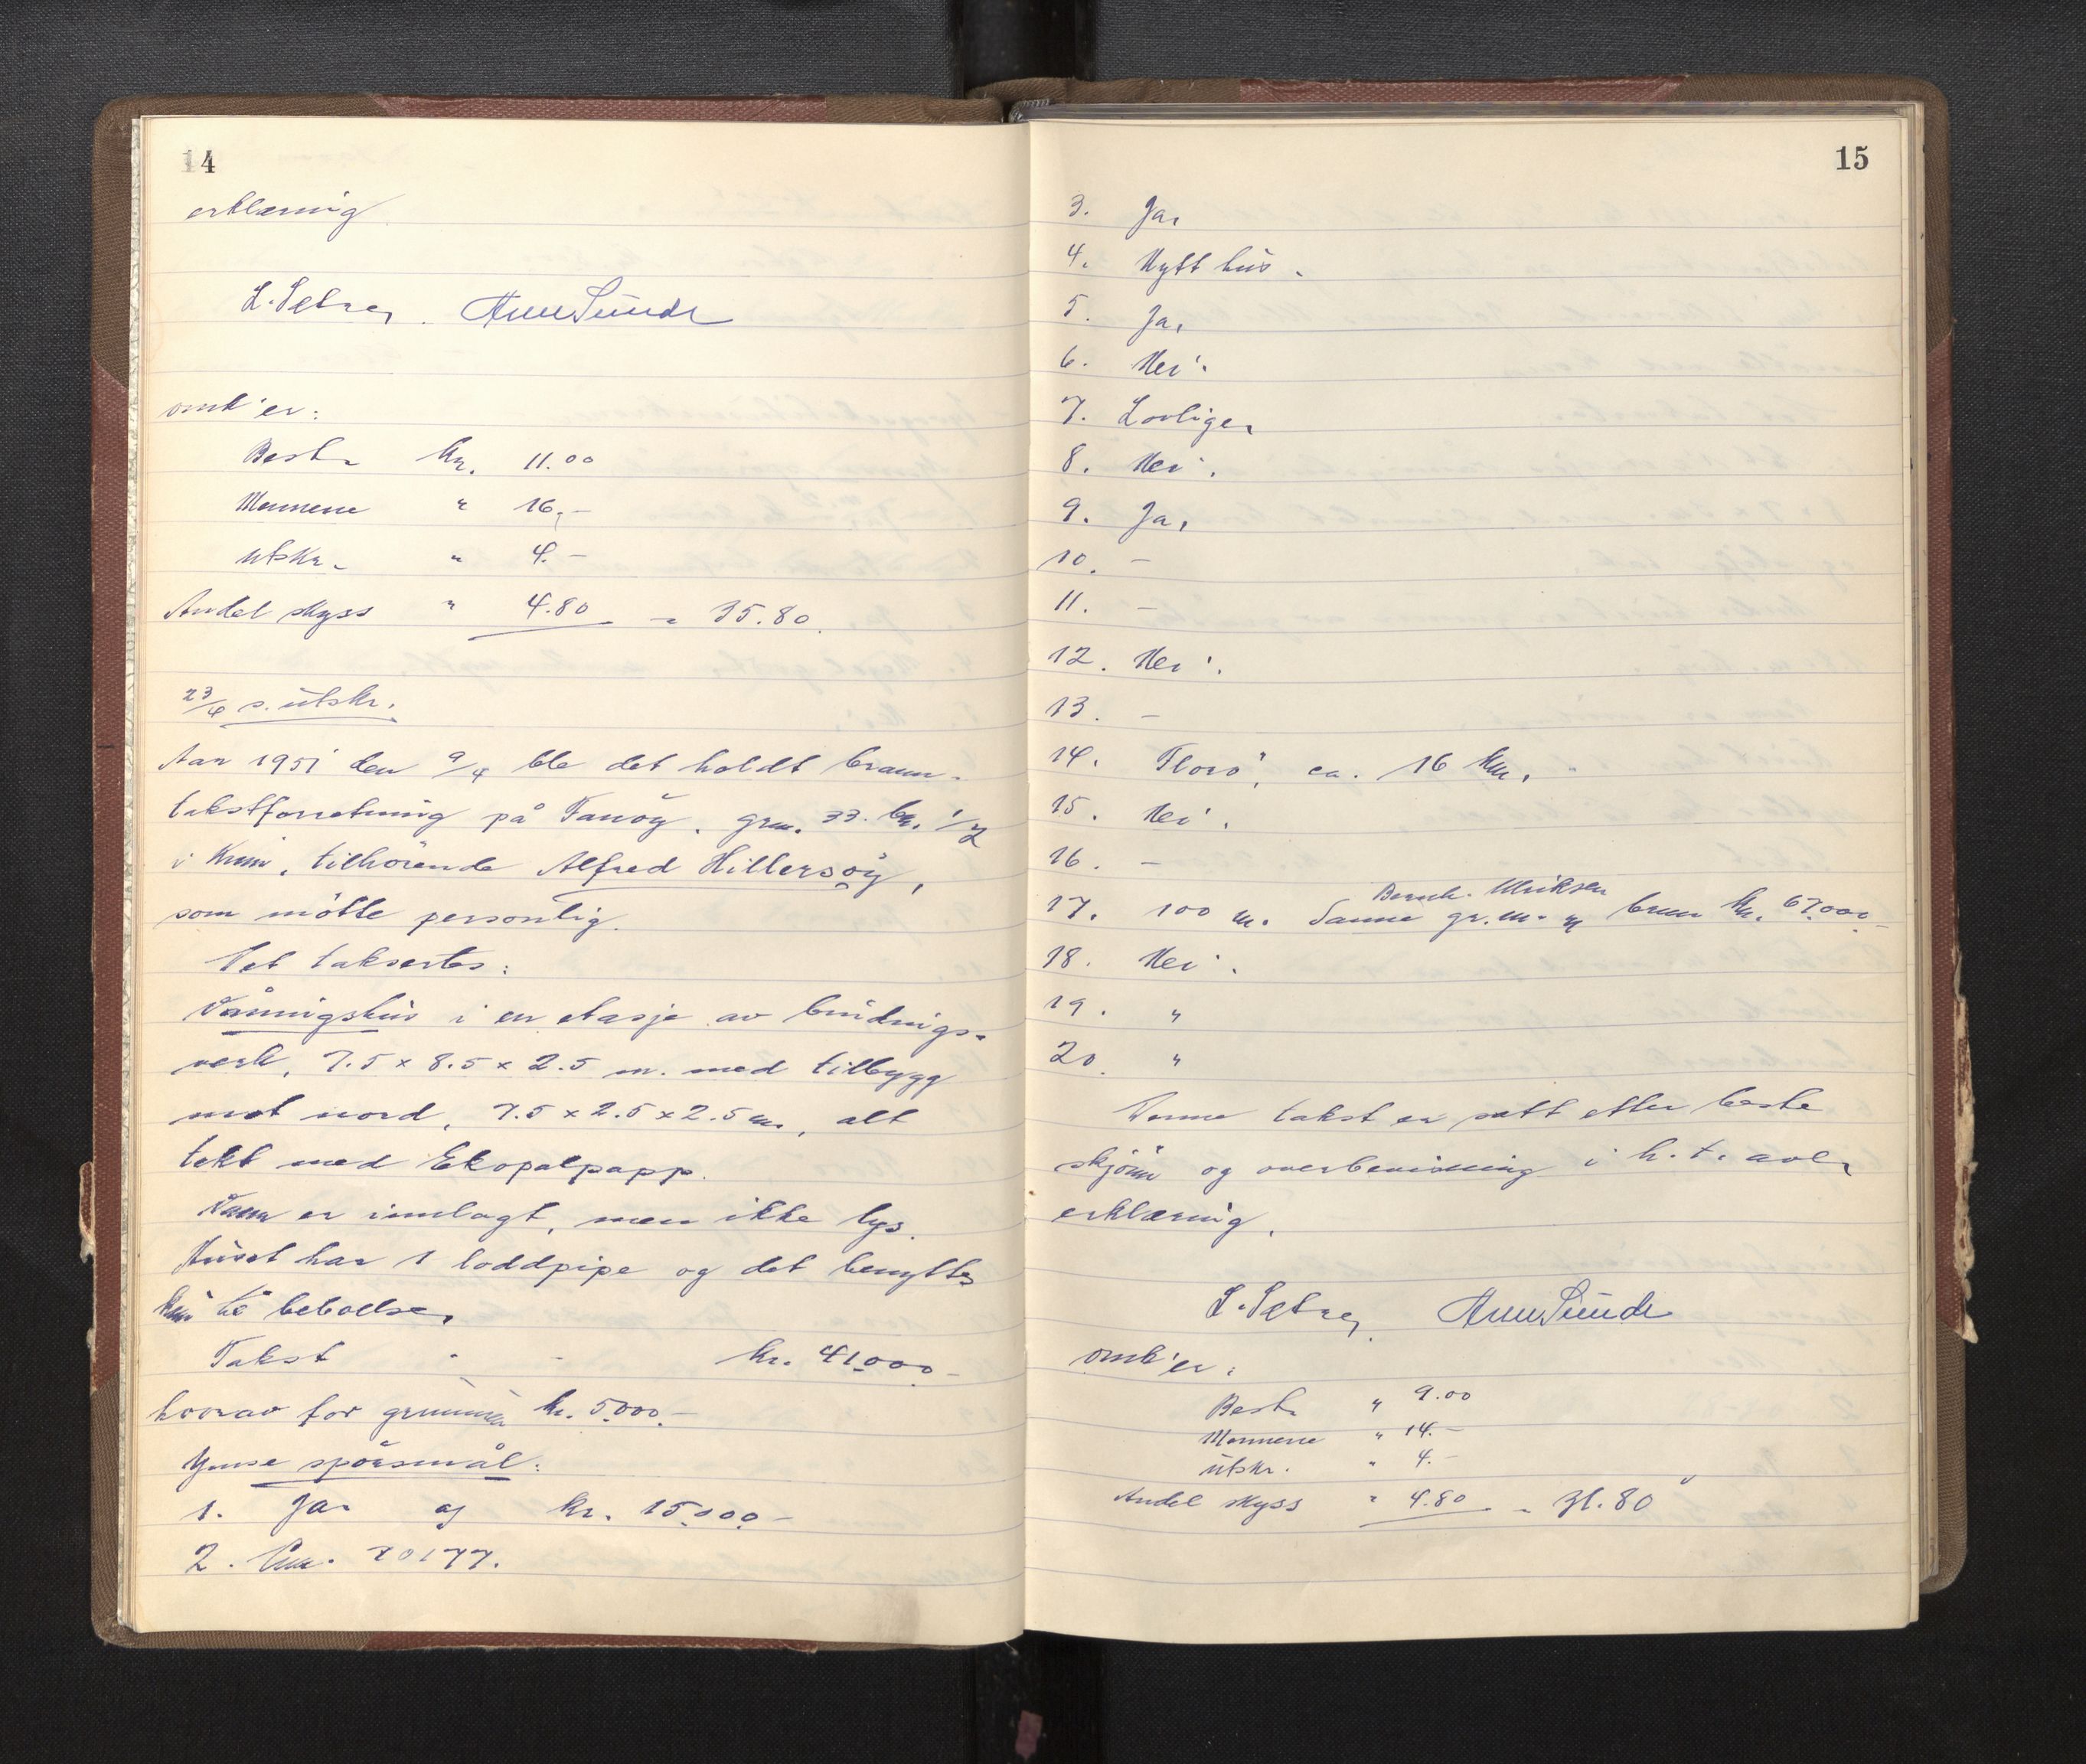 14
erklæring
L. Sætre. Arne Sunde
omk'er:
Best. kr. 11.00
Mennene " 16.-
utskr. " 4.-
Andel skyss " 4.80 = 35.80.
23/4 s. utskr.
Aar 1951 den 9/4 ble det holdt brann-
takstforretning på Tansöy. gnr. 33. br. 1/2
i Kinn, tilhörende Alfred Hillersöy,
som mötte personlig.
Det taksertes:
Våningshus i en etasje av bindings-
verk, 7.5 x 8.5 x 2.5 m. med tilbygg
mot nord, 7.5 x 2.5 x 2.5 m., alt
tekt med Ekopalpapp.
Vann er innlagt, men ikke lys.
Huset har 1 loddpipe og det benyttes
kun til beboelse.
Takst - - kr. 41.000.-
hvorav for grunnmur kr. 5.000.-
Ymse spörsmål:
1. Ja. og kr. 15.000.-
2. 20177.
15
3. Ja.
4. Nytt hus.
5. Ja.
6. Nei.
7. Lovlige.
8. Nei.
9. Ja.
10. -
11. -
12. Nei.
13. -
14. Florö, ca. 16 km.
15. Nei.
16. -
Bernh. Ulriksen
17. 100 m. Samme gr. nr. og brnr kr. 67.000.-
18. Nei.
19. "
20. "
Denne takst er satt etter beste
skjönn og overbevisning i h. t. avl.
erklæring.
L. Sætre. Arne Sunde
omk'er:
Best. " 9.00
Mennene " 14.-
utskr. " 4.-
Andel skyss " 4.80 = 31.80